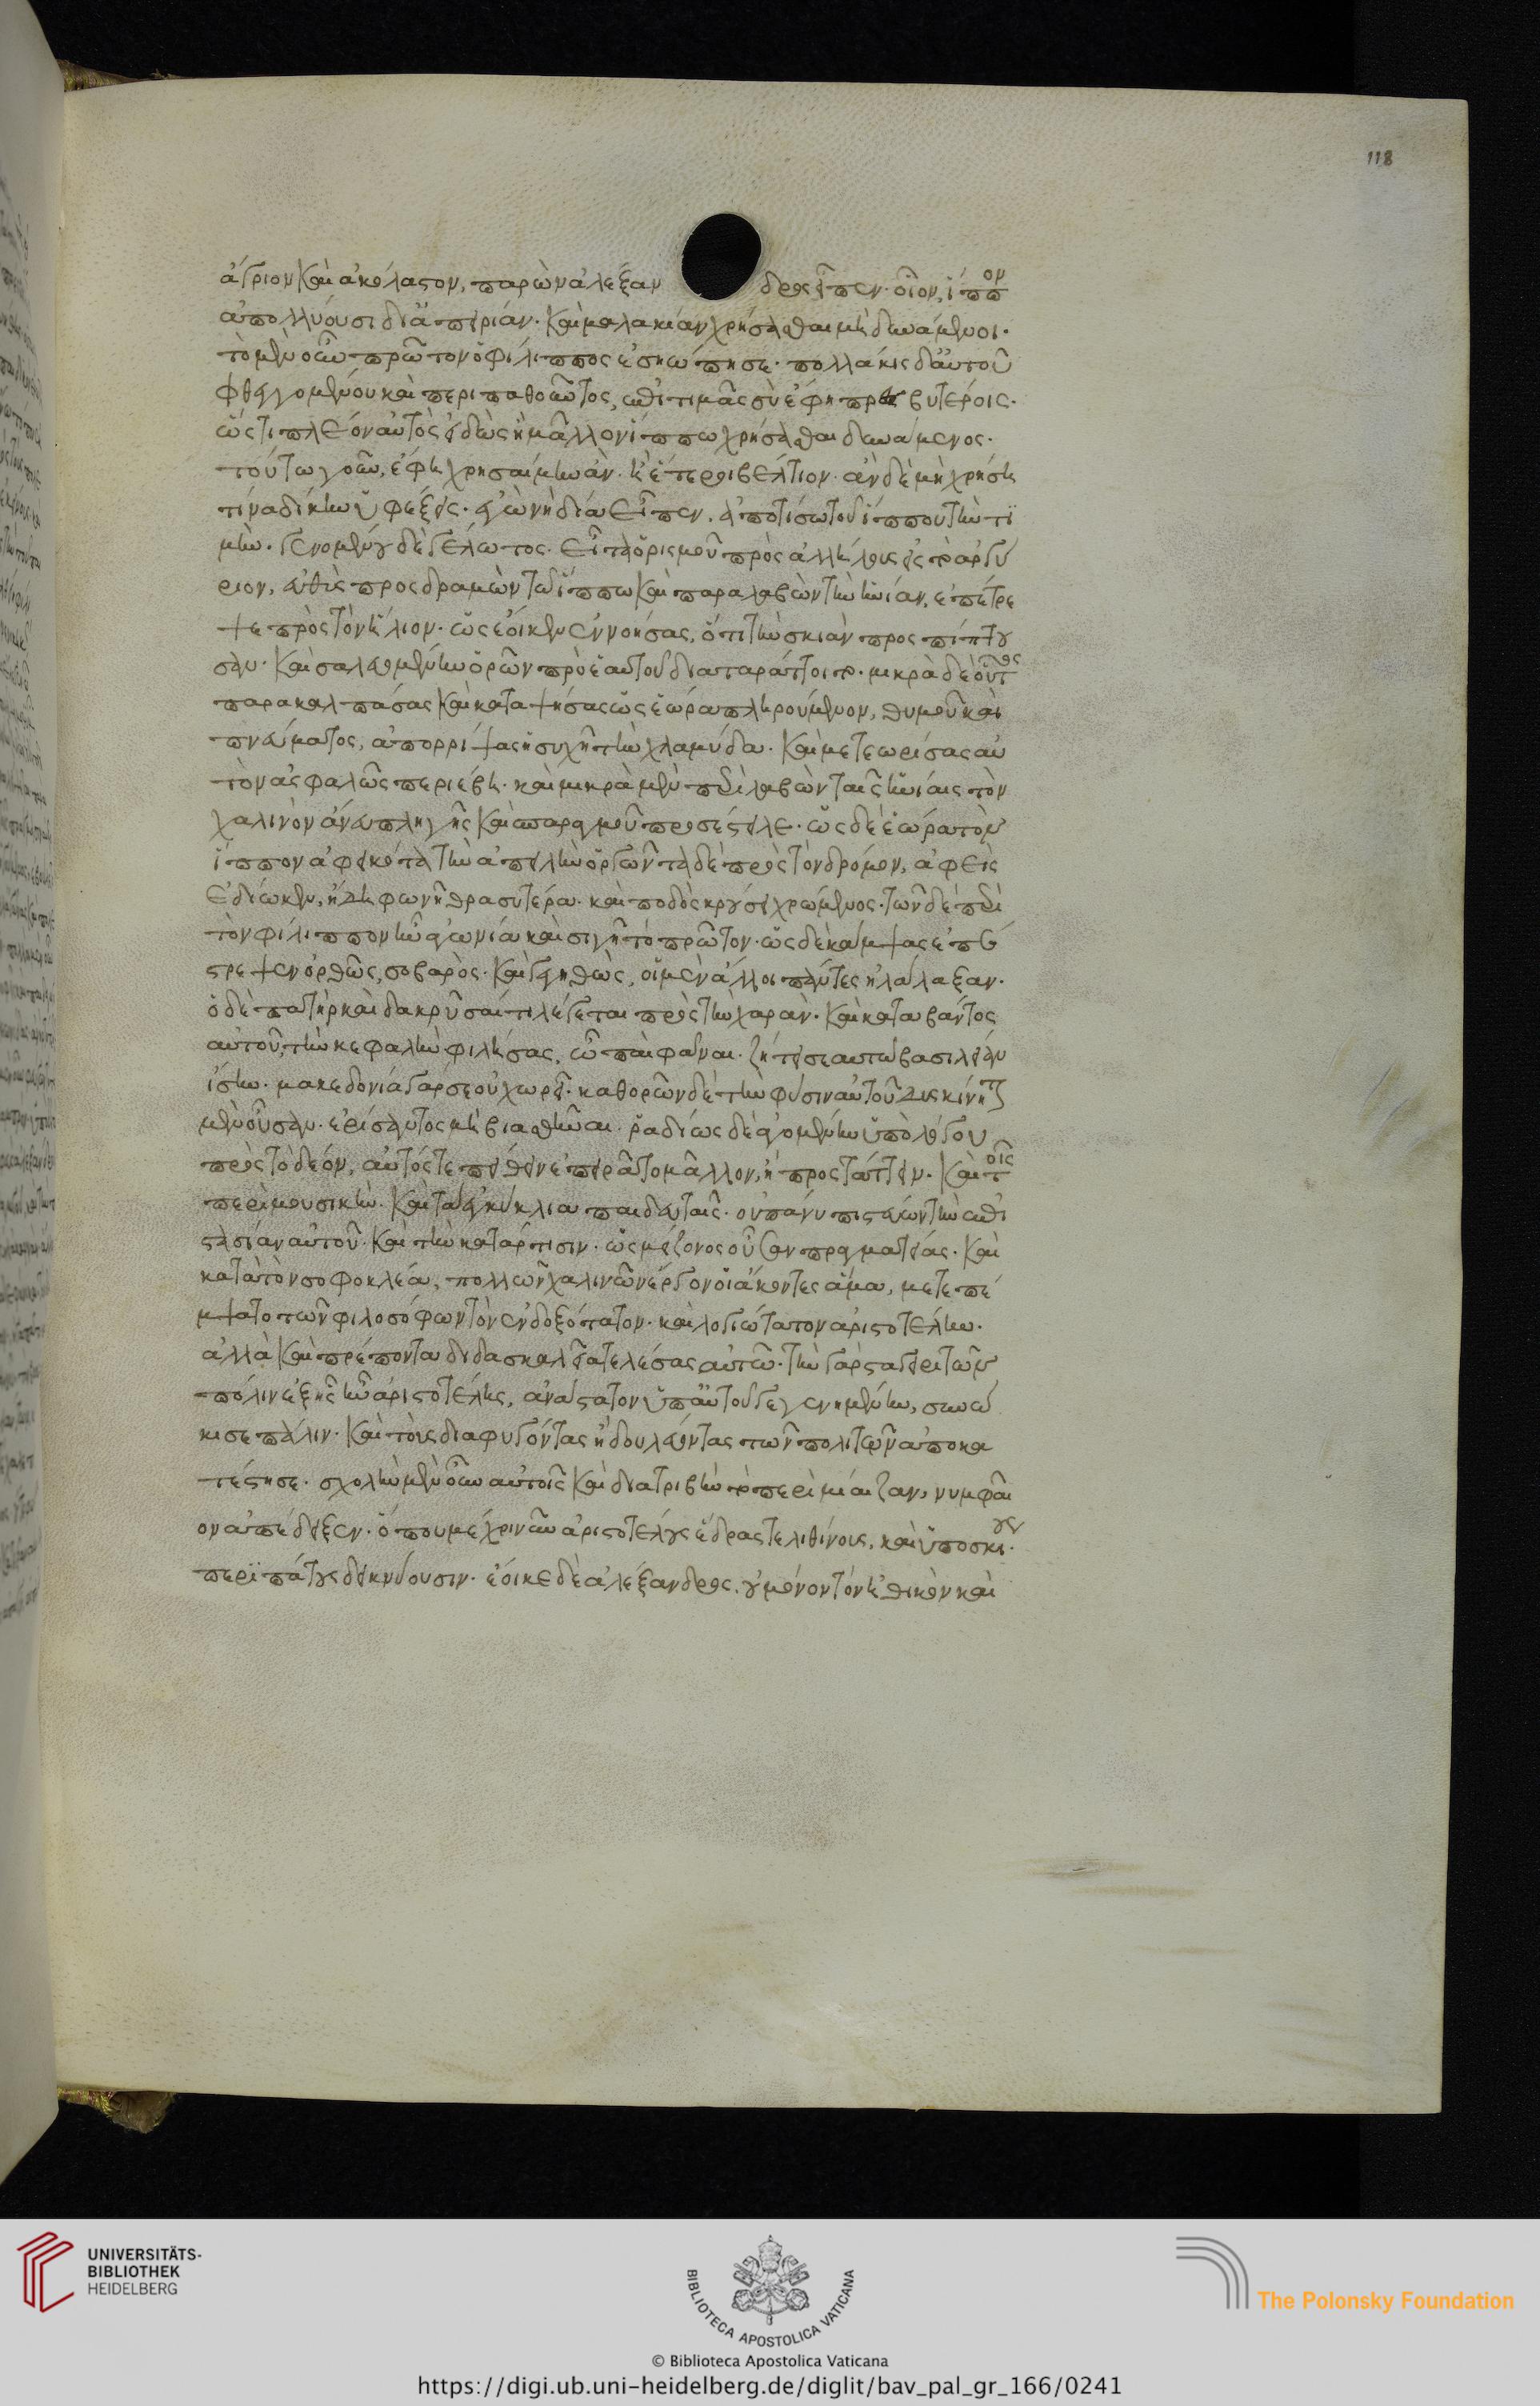 118
ἄγριον καὶ ἀκόλαστον, παρὼν ἀλέξανδρος εἶπεν· οἷον, ἵππον
ἀπολλύουσι δι᾽ ἀπειρίαν· καὶ μαλακίαν χρήσασθαι μὴ δυνάμενοι·
τὸ μὲν οὖν πρῶτον ὁ φίλιππος ἐσιώπησε· πολλάκις δ᾽ αὐτοῦ
φθεγγομένου καὶ περιπαθοῦντος, ἐπιτιμᾶς σὺ ἔφη πρεσβυτέροις·
ὥς τι πλέον αὐτὸς εἰδὼς ἢ μᾶλλον ἵππω χρήσασθαι δυνάμενος·
τούτω γοῦν, ἔφη χρησαίμην ἂν· ἢ ἑτέρω βέλτιον· ἂν δὲ μὴ χρήση
τίνα δίκην ὑφέξεις· ἐγὼ νὴ δία εἶπεν, ἀποτίσω τοῦ ἵππου τὴν τι
μὴν· γενομένου δὲ γέλωτος· εἶτα ὁρισμοῦ πρὸς ἀλλήλους εἰς τὸ ἀργύ
ριον, εὐθὺς προσδραμὼν τῶ ἵππω καὶ παραλαβὼν τὴν ἡνίαν, ἐπέτρε
ψε πρὸς τὸν ἥλιον· ὡς ἔοικεν ἐννοήσας, ὅτι τὴν σκιὰν προσπίπτου
σαν· καὶ σαλευομένην ὁρῶν πρὸ ἑαυτοῦ διαταράττοιτο· μικρὰ δὲ οὕτως
παρακαλπάσας καὶ καταψήσας ὡς ἑώρα πληρούμενον, θυμοῦ καὶ
πνεύματος, ἀπορρίψας ἡσυχῆ τὴν χλαμύδα· καὶ μετεωρίσας αὐ
τὸν ἀσφαλῶς περιέβη· καὶ μικρὰ μὲν περιλαβὼν ταῖς ἡνίαις τὸν
χαλινὸν ἄνευ πληγῆς καὶ σπαραγμοῦ προσέστειλε· ὡς δὲ ἑώρα τὸν
ἵππον ἀφεικότα τὴν ἀπειλὴν ὀργῶντα δὲ πρὸς τὸν δρόμον, ἀφεὶς
ἐδίωκεν, ἤδη φωνῆ θρασυτέρα· καὶ ποδὸς κρούσει χρώμενος· τῶν δὲ περὶ
τὸν φίλιππον ἦν ἀγωνία καὶ σιγὴ τὸ πρῶτον· ὡς δὲ κάμψας ἐπέ
στρεψεν ὀρθῶς, σοβαρὸς· καὶ γεγηθὼς, οἱ μὲν ἄλλοι πάντες ἠλάλαξαν·
ὁ δὲ πατὴρ καὶ δακρῦσαί τι λέγεται πρὸς τὴν χαρὰν· καὶ καταβάντος
αὐτοῦ, τὴν κεφαλὴν φιλήσας, ὦ παῖ φάναι· ζήτει σεαυτῶ βασιλείαν
ἴσην· μακεδονία γάρ σε οὐ χωρεῖ· καθορῶν δὲ τὴν φύσιν αὐτοῦ δυσκίνητον
μὲν οὖσαν· ἐρίσαντος μὴ βιασθῆναι· ῥαδίως δὲ ἀγομένην ὑπὸ λόγου
πρὸς τὸ δέον, αὐτός τε πείθειν ἐπειρᾶτο μᾶλλον, ἢ προστάττειν· καὶ τοῖς
περὶ μουσικὴν· καὶ τὰ ἐγκύκλια παιδευταῖς· οὐ πάνυ πιστεύων τὴν ἐπι
στασίαν αὐτοῦ· καὶ τὴν κατάρτισιν· ὡς μείζονος οὖσαν πραγματείας· καὶ
κατὰ τὸν σοφοκλέα, πολλῶν χαλινῶν ἔργον οἰάκοντες ἅμα, μετεπέ
μψατο τῶν φιλοσόφων τὸν ἐνδοξότατον· καὶ λογιώτατον ἀριστοτέλην·
ἀλλὰ καὶ πρέποντα διδασκαλεῖα τελέσας αὐτῶ· τὴν γὰρ σταγειριτῶν
πόλιν ἐξ ἧς ἦν ἀριστοτέλης, ἀνάστατον ὑπ᾽ αὐτοῦ γεγενημένην, συνώ
κισε πάλιν· καὶ τοὺς διαφυγόντας ἢ δουλεύοντας τῶν πολιτῶν ἀποκα
τέστησε· σχολὴν μὲν οὖν αὐτοῖς καὶ διατριβὴν τὸ περὶ μίαιζαν, νυμφαῖ
ον ἀπέδειξεν· ὅπου μέχρι νῦν ἀριστοτέλους ἕδρας τε λιθίνους, καὶ ὑποσκίους
περιπάτους δεικνύουσιν· ἔοικε δὲ ἀλέξανδρος, οὐ μόνον τὸν ἠθικὸν καὶ
UNIVERSITÄTS-
BIBLIOTHEK
HEIDELBERG
BIBLIOTECA APOSTOLICA VATICANA
The Polonsky Foundation
© Biblioteca Apostolica Vaticana
https://digi.ub.uni-heidelberg.de/diglit/bav_pal_gr_166/0241